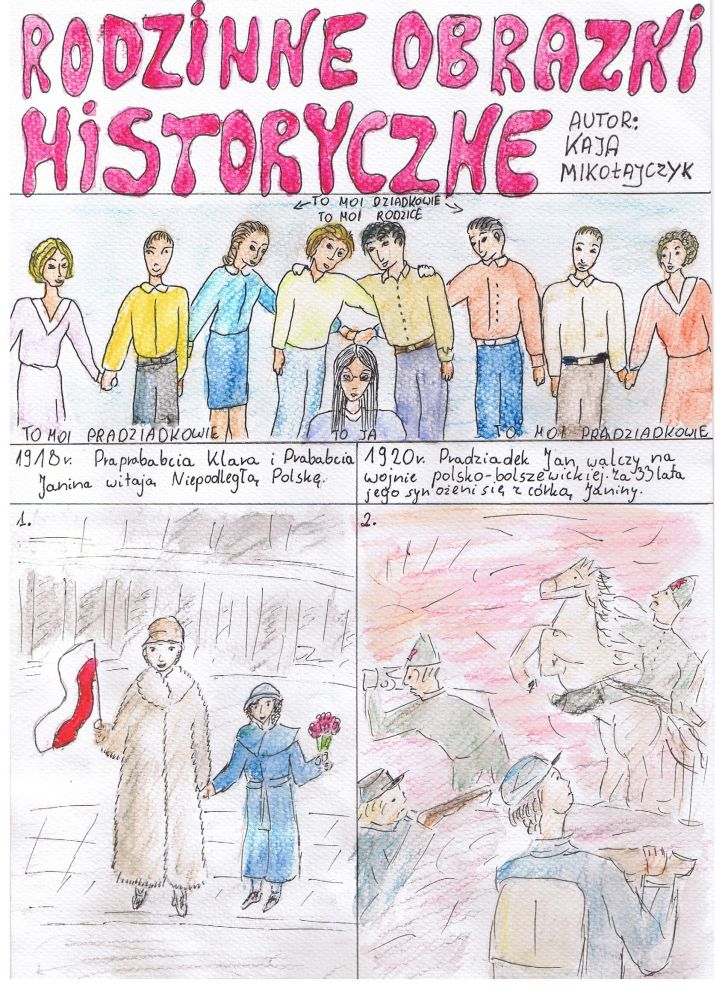 RODZINNE OBRAZKI
HISTORYCZNE
AUTOR:
KAJA
MIKOŁAJCZYK
←TO MOI DZIADKOWIE
TO MOI RODZICE →
TO MOI PRADZIADKOWIE
TO JA
TO MOI PRADZIADKOWIE
1918r. Praprababcia Klara i Prababcia
Janina witają Niepodległą Polskę.
1920r. Pradziadek Jan walczy na
wojnie polsko-bolszewickiej. Za 33 lata
jego syn ożeni się z córką Janiny.
1.
2.